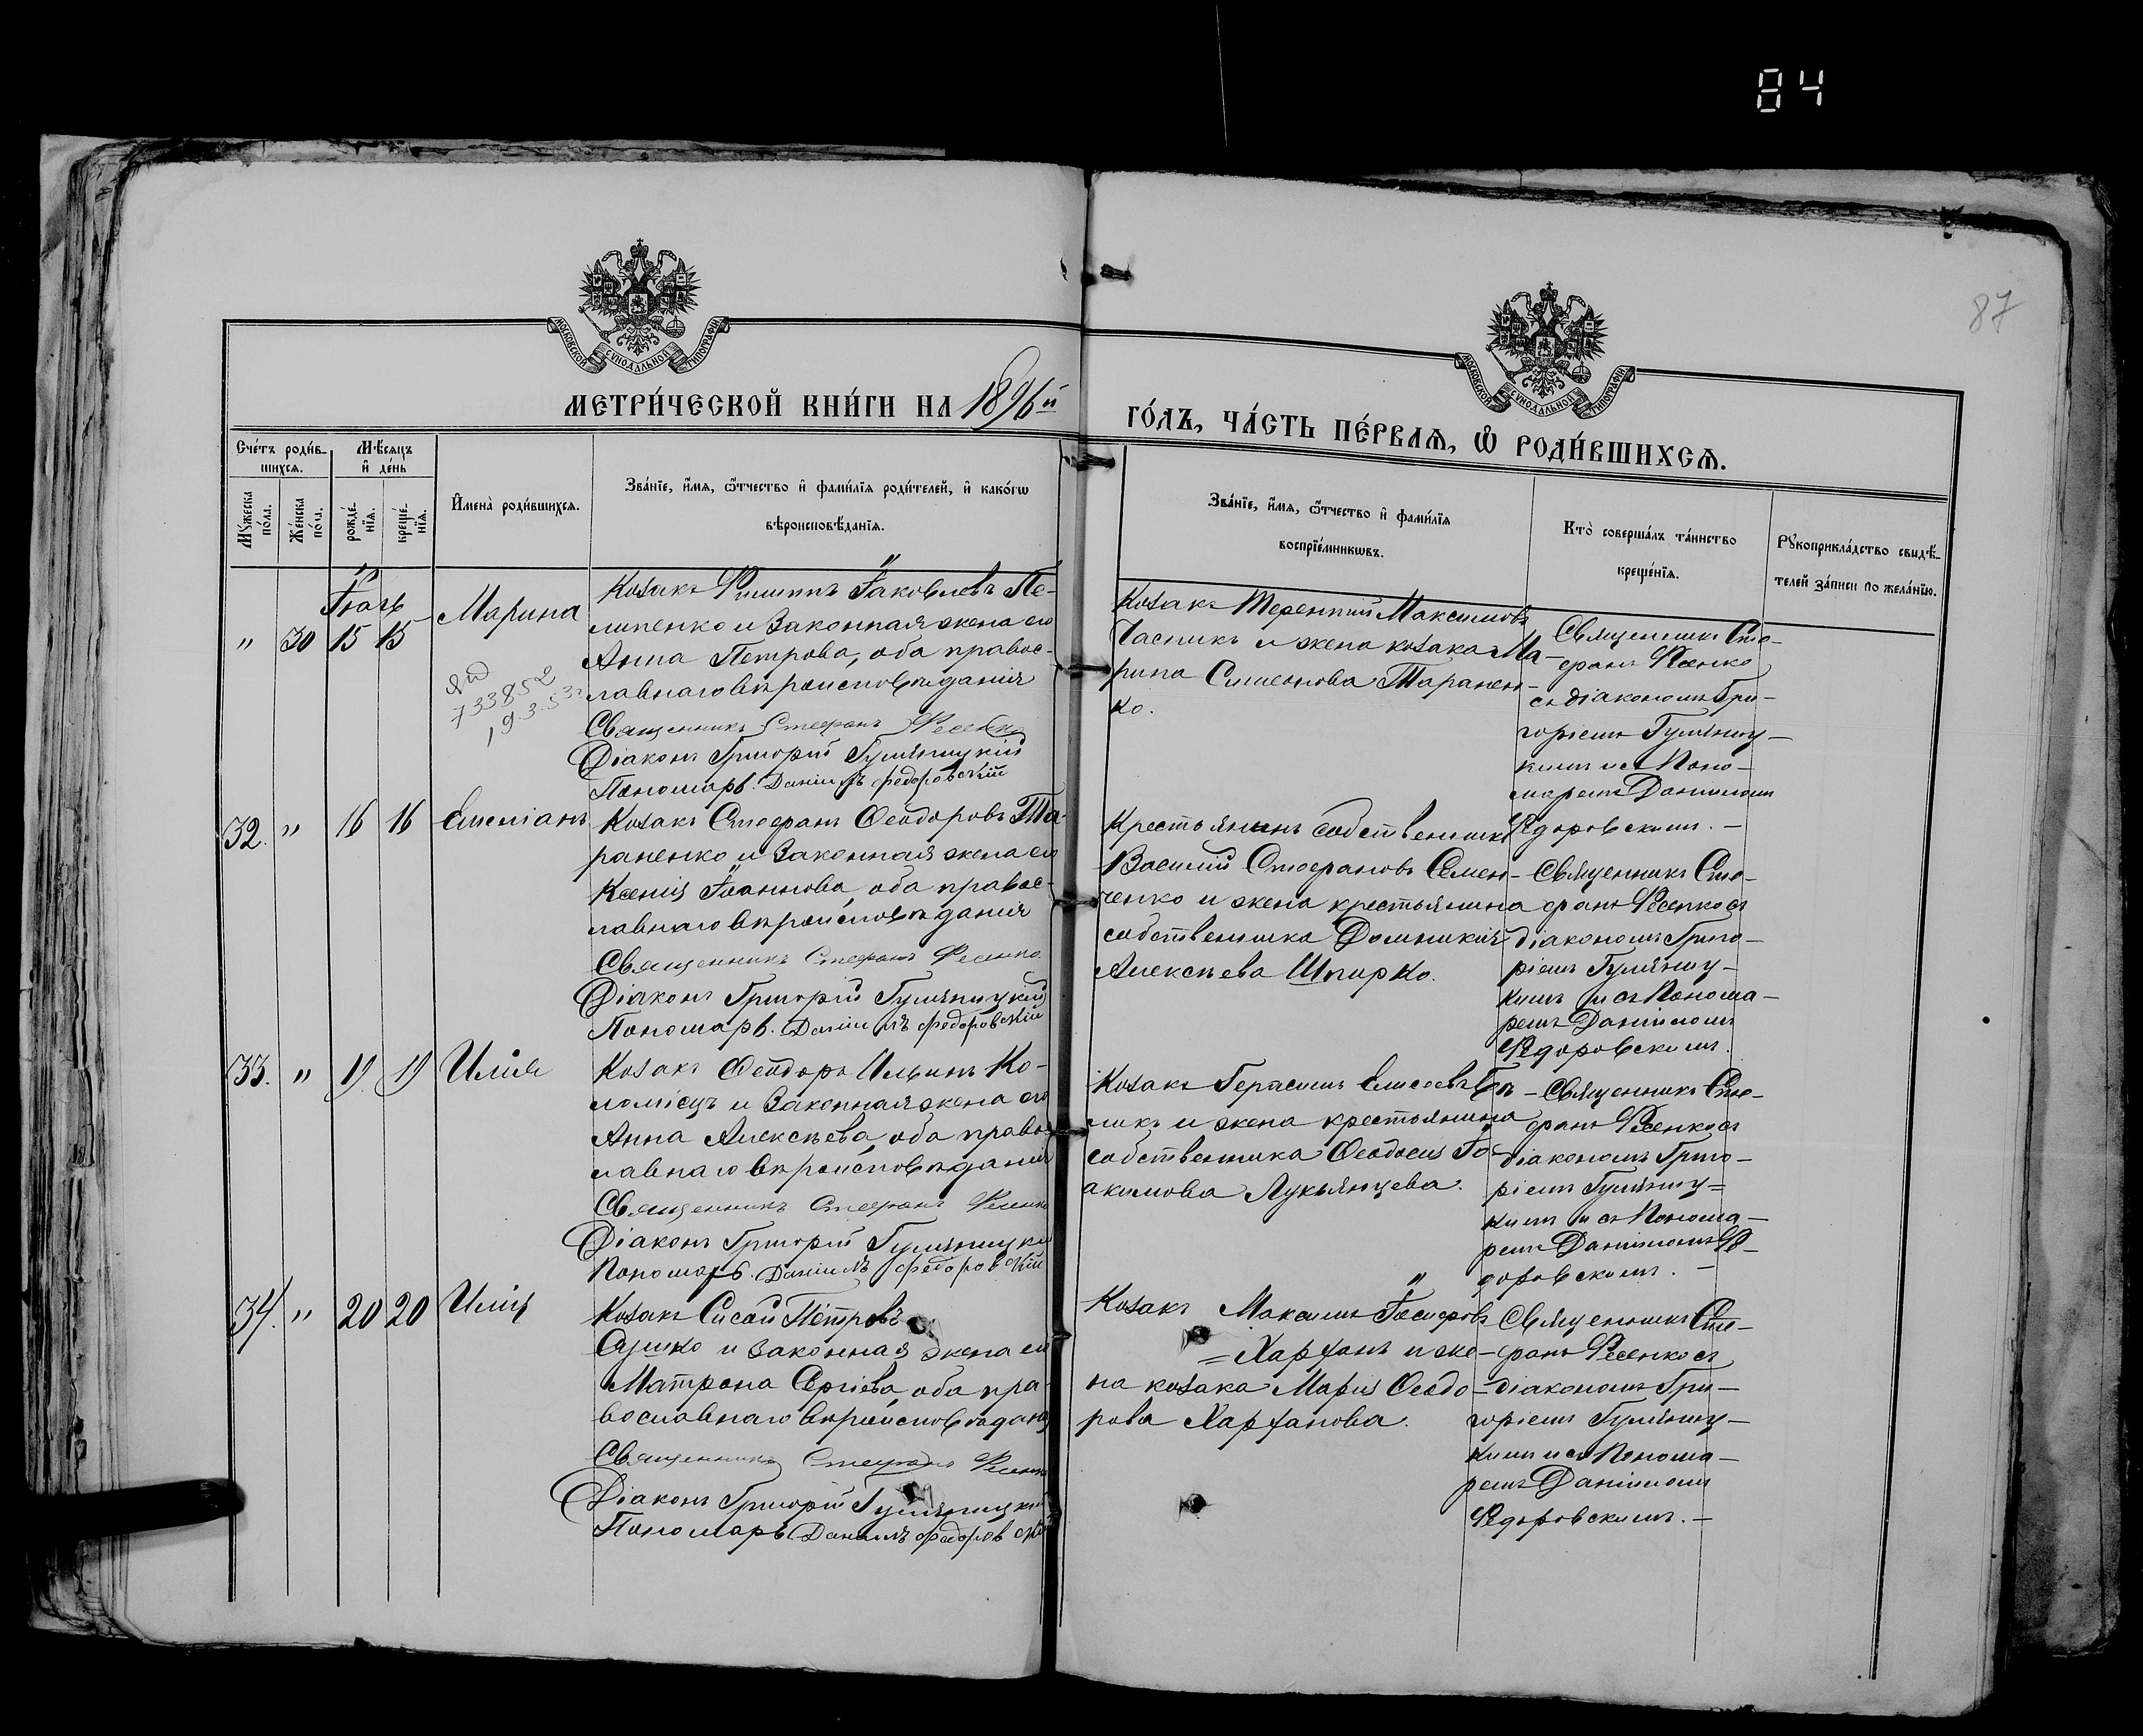 84
87
МОСКОВСКОЙ СУНОДАЛЬНОЙ ТИПОГРАФІИ
МОСКОВСКОЙ СУНОДАЛЬНОЙ ТИПОГРАФІИ
МЕТРИ́ЧЕСКОЙ КНИ́ГИ НА 1896й
ГО́ДЪ, ЧА́СТЬ ПЕ́РВАѦ, Ѽ РОДИ́ВШИХСѦ.
Сче́тъ роди́в-
шихсѧ.
Мѣ́сѧцъ
и҆ де́нь
Мꙋ́жеска
по́ла.
Же́нска
по́ла.
рожде́-
нїѧ.
креще́-
нїѧ.
И҆мена̀ роди́вшихсѧ.
Зва́нїе, и҆́мѧ, ѻ҆́тчество и҆ фами́лїѧ роди́телей, и҆ како́гѡ
вѣроисповѣ́данїѧ.
Зва́нїе, и҆́мѧ, ѻ҆́тчество и҆ фами́лїѧ
воспрїе́мникѡвъ.
Кто̀ соверша́лъ та́инство
креще́нїѧ.
Рꙋкоприкла́дство свидѣ́-
телей за́писи по жела́нїю.
Іюль
" 30 15 15 Марина
733852
Козакъ Филиппъ Іаковлевъ Пе-
липенко и законная жена его
Анна Петрова, оба правос-
лавнаго вѣроисповѣданія
Священникъ Стефанъ Фесенко
Діаконъ Григорій Гуляницкій
Пономарь Даніилъ Федоровскій
Козакъ Терентій Максимовъ
Часникъ и жена козака Ма-
рина Симеонова Таранен-
ко.
Священникъ Сте-
фанъ Фесенко
съ діакономъ Гри-
горіемъ Гуляниц-
кимъ и съ Поно-
маремъ Даніиломъ
Федоровскимъ. -
32. " 16 16 Емиліанъ
Козакъ Стефанъ Ѳеодоровъ Та-
раненко и законная жена его
Ксенія Іоаннова, оба правос-
лавнаго вѣроисповѣданія
Священникъ Стефанъ Фесенко
Діаконъ Григорій Гуляницкій
Пономарь. Даніилъ Федоровскій
Крестьянинъ собственникъ
Василій Стефановъ Семен-
ченко и жена крестьянина
собственника Домникія
Алексѣева Шпирко.
Священникъ Сте-
фанъ Фесенко съ
діакономъ Григо-
ріемъ Гуляниц-
кимъ и съ Понома-
ремъ Даніиломъ
Федоровскимъ.
33. " 19 19 Илія
Козакъ Ѳеодоръ Ильинъ Ко-
ломіецъ и законная жена его
Анна Алексѣева, оба правос-
лавнаго вѣроисповѣданія
Священникъ Стефанъ Фесенко
Діаконъ Григорій Гуляницкій
Пономарь. Даніилъ Федоровскій
Козакъ Герасимъ Елисеевъ
ликъ и жена крестьянина
собственника Ѳеодосія Іо-
акимова Лукьянцева.
- Священникъ Сте-
фанъ Фесенко съ
діакономъ Григо-
ріемъ Гуляниц-
кимъ и съ Понома-
ремъ Даніиломъ Фе-
доровскимъ. -
34. " 20 20 Илія
Козакъ Сисой Петровъ
Сушко и законная жена его
Матрона Сергіева, оба пра-
вославнаго вѣроисповѣданія
Священникъ Стефанъ Фесенко
Діаконъ Григорій Гуляницкій
Пономарь Даніилъ Федоровскій
Козакъ Максимъ Іосифовъ
= Харханъ и же-
на козака Марія Ѳеодо-
рова Харханова.
Священникъ Сте-
фанъ Фесенко съ
діакономъ Гри-
горіемъ Гуляниц-
кимъ и съ Понома-
ремъ Даніиломъ
Федоровскимъ. -